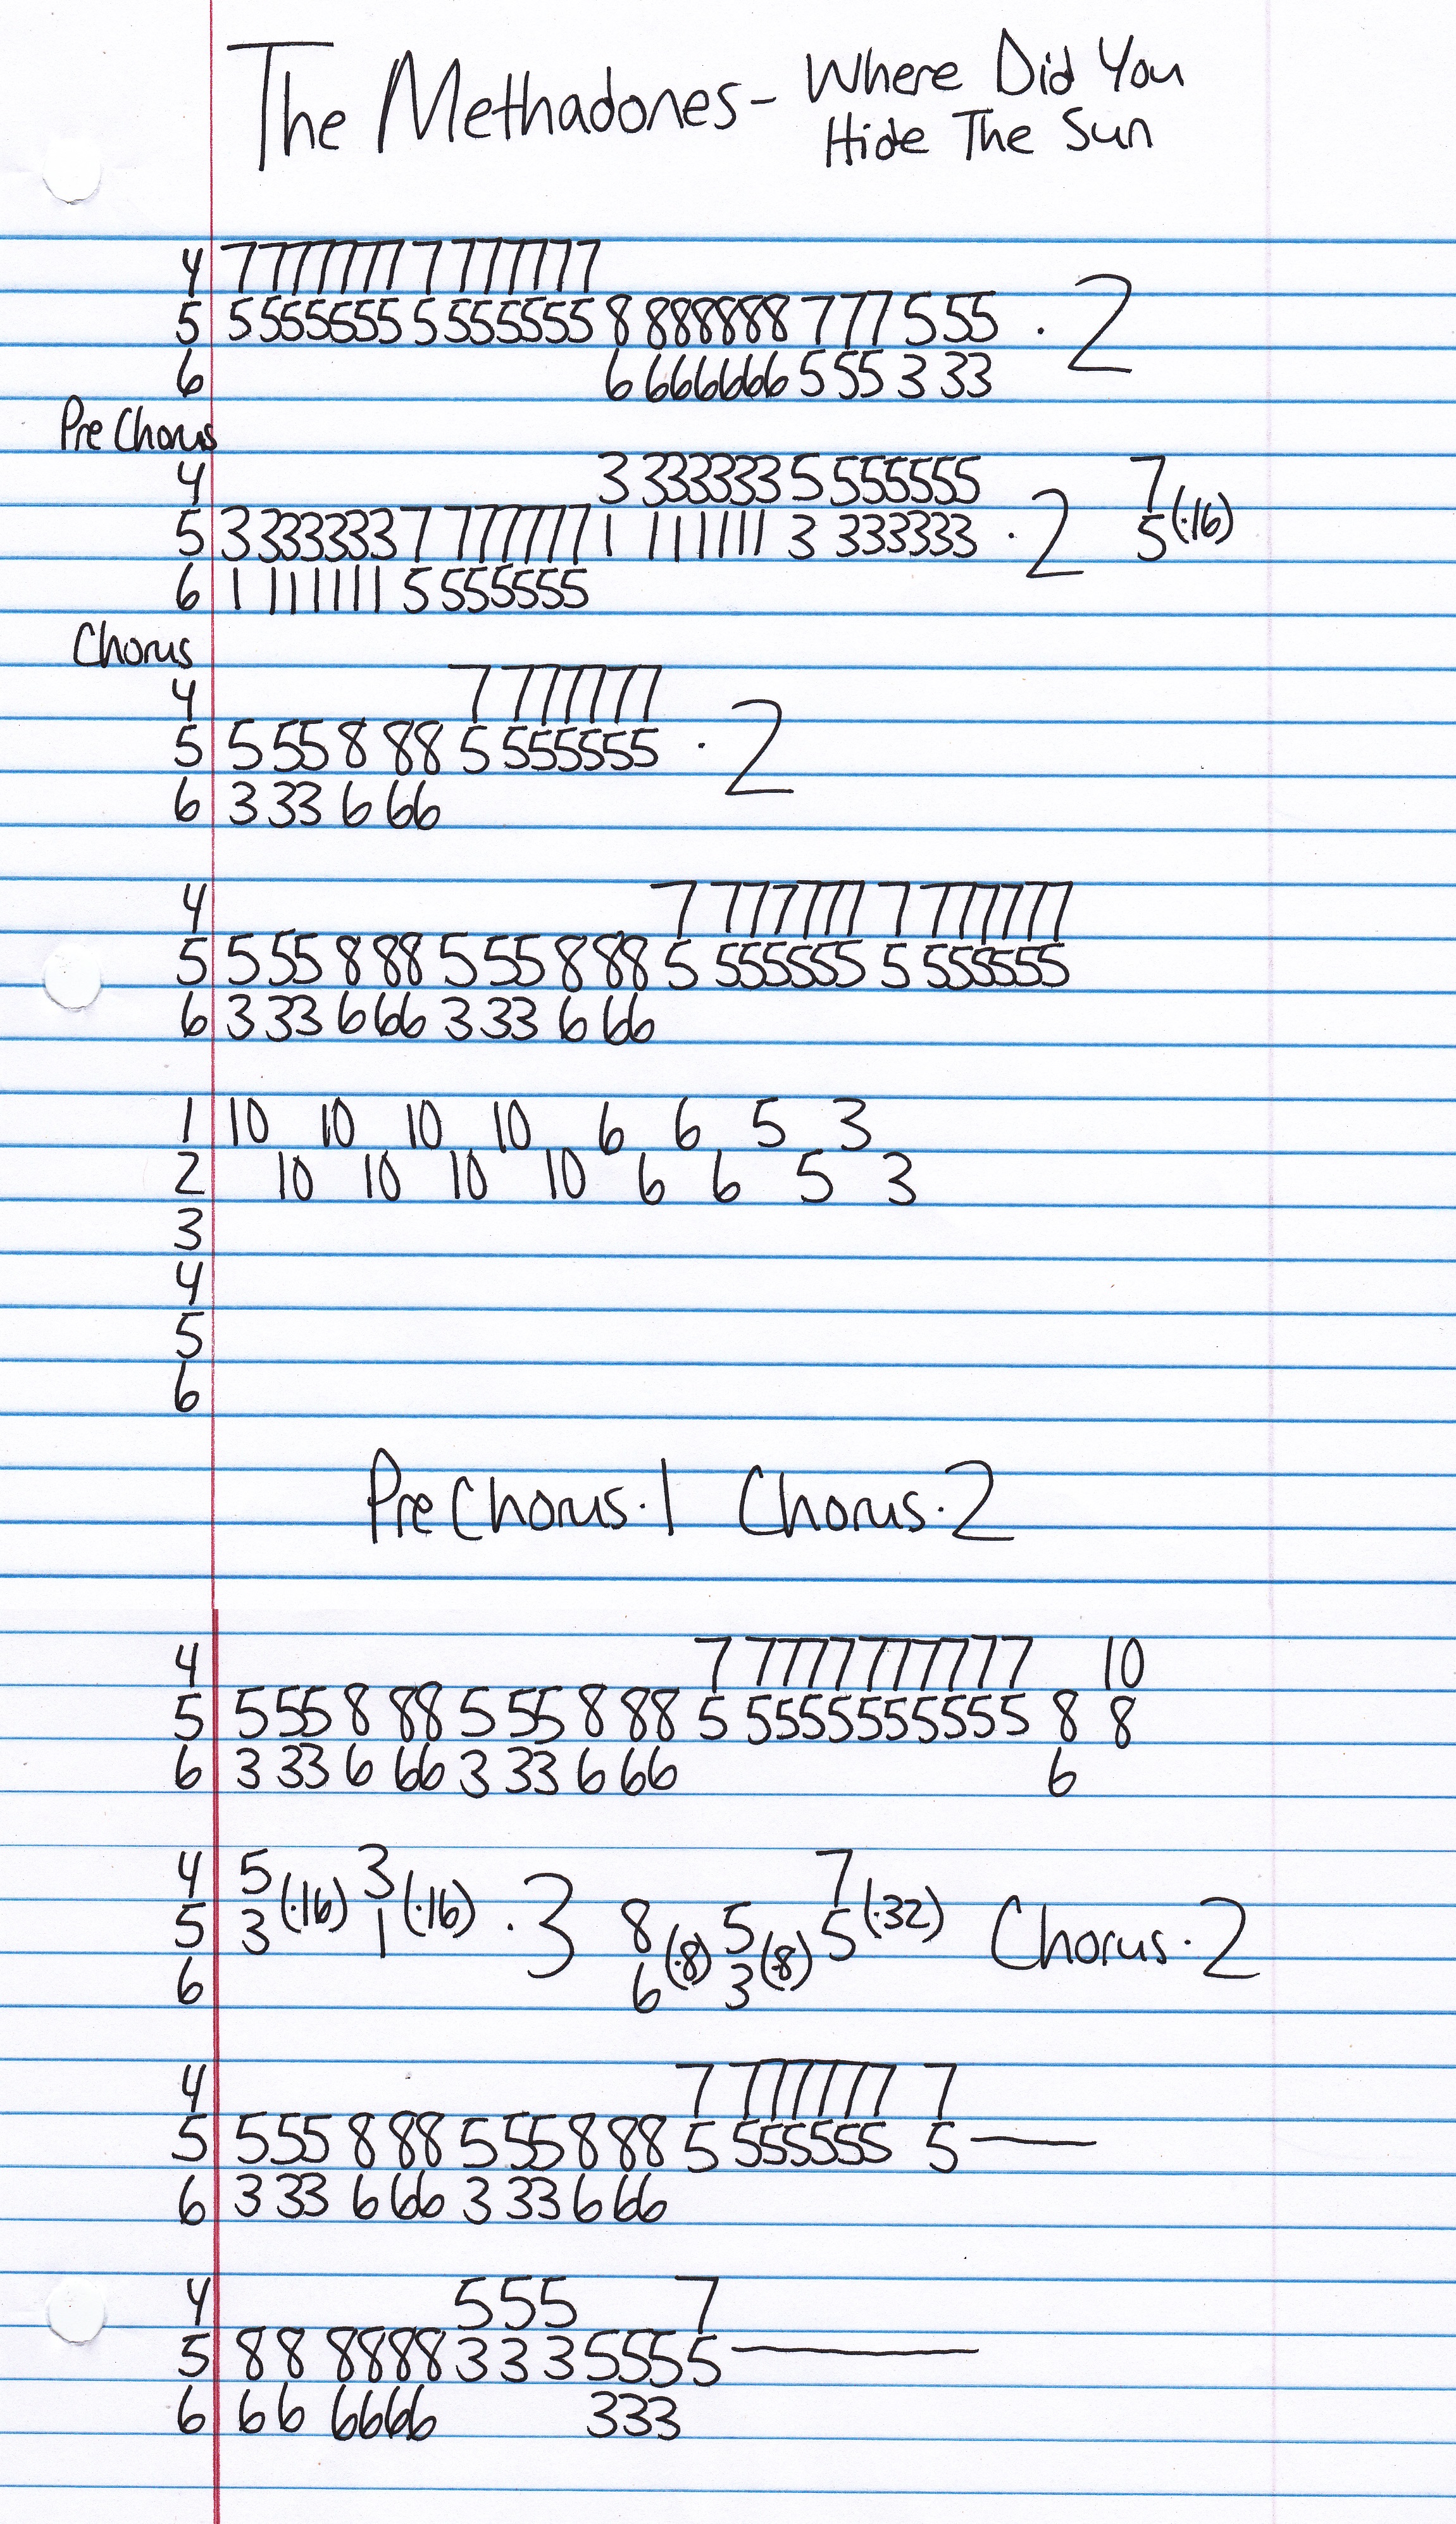 The Methadones - Where Did You
Hide The Sun
4 7 777777 7 777777
5 5 555555 5 555555 8 888888 777 555 · 2
6 6 666666 555 3 33
Pre Chorus
4 3 333333 5 555555 7
5 3 333333 7 777777 1 111111 3 333333 · 2 5 (·16)
6 1 111111 5 555555
Chorus
4 7 777777
5 5 55 8 88 5 555555 · 2
6 3 33 6 66
4 7 777777 7 777777
5 5 55 8 88 5 55 8 88 5 555555 5 555555
6 3 33 6 66 3 33 6 66
1 10 10 10 10 6 6 5 3
2 10 10 10 10 6 6 5 3
3
4
5
6
Pre Chorus · 1 Chorus · 2
4 7 7777777777 10
5 5 55 8 88 5 55 8 88 5 5555555555 8 8
6 3 33 6 66 3 33 6 66 6
4 5 3 7
5 3 (·16) 1 (·16) · 3 8 (·8) 5 (·8) 5 (·32) Chorus · 2
6 6 3
4 7 777777 7
5 5 55 8 88 5 55 8 88 5 555555 5 —
6 3 33 6 66 3 33 6 66
4 555 7
5 88 8888 333 555 5 —
6 66 6666 333